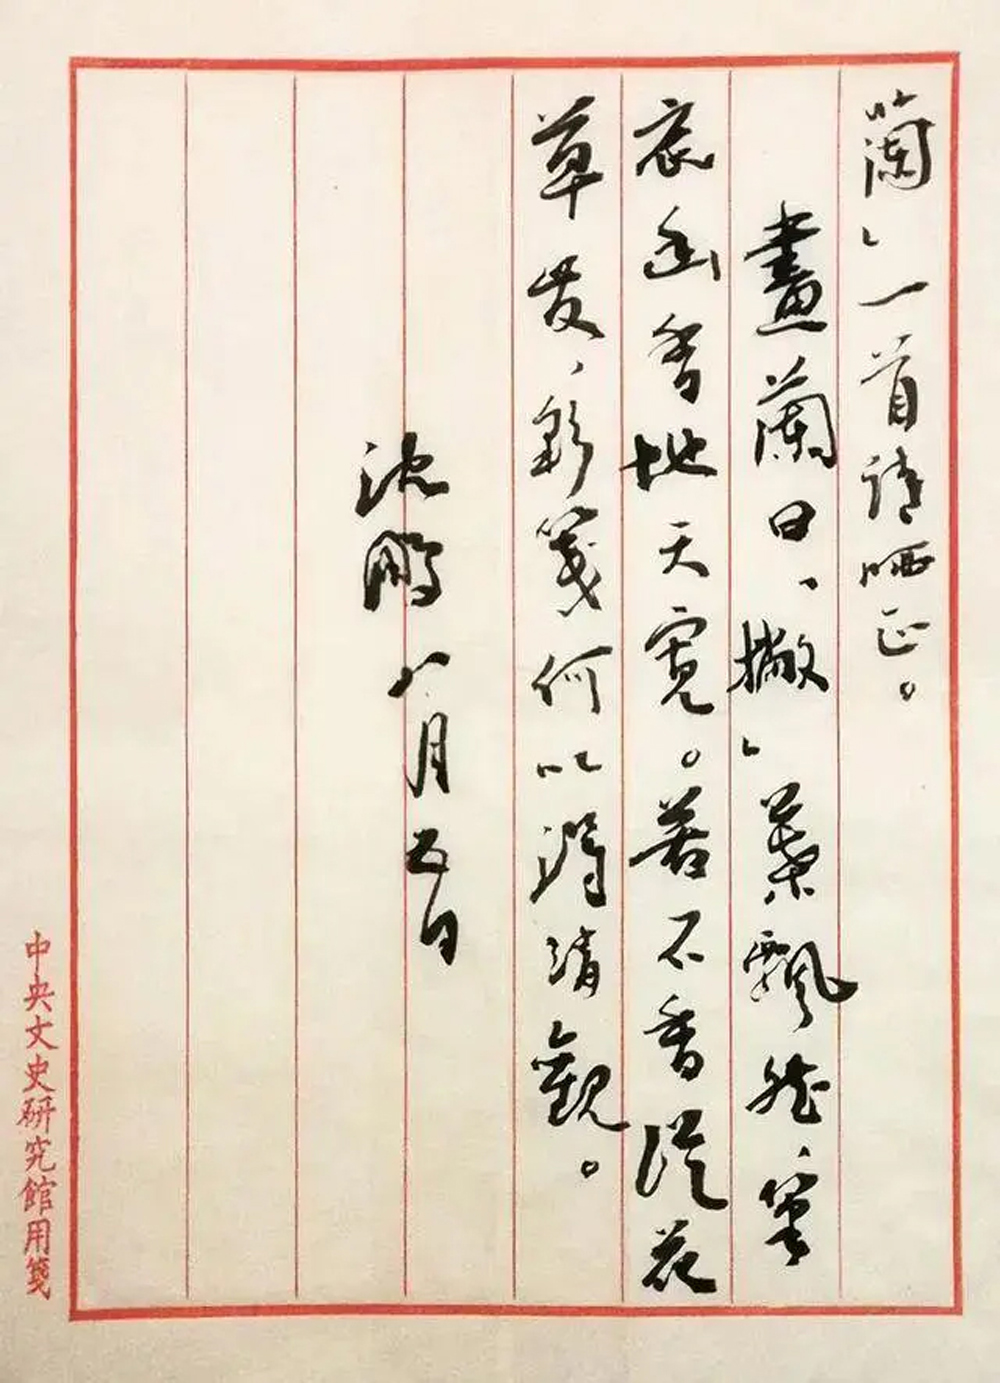 蘭」一首請哂正。
畫蘭日、撇」葉飄然、筆
底幽香地天寬。若不香從花
草發、彩箋何以清觀。
沈鵬八月五日
中央文史研究館用箋